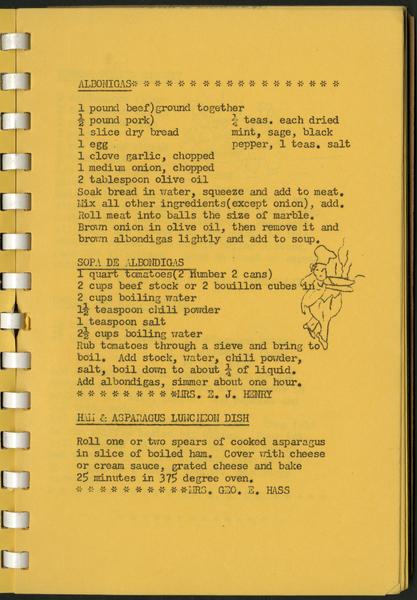 ALBONIGAS* * * * * * * * * * * * * * * * * *
1 pound beef)ground together
½ pound pork) ¼ teas. each dried
1 slice dry bread mint, sage, black
1 egg pepper, 1 teas. salt
1 clove garlic, chopped
1 medium onion, chopped
2 tablespoon olive oil
Soak bread in water, squeeze and add to meat.
Mix all other ingredients(except onion), add.
Roll meat into balls the size of marble.
Brown onion in olive oil, then remove it and
brown albondigas lightly and add to soup.
SOPA DE ALBONDIGAS
1 quart tomatoes(2 number 2 cans)
2 cups beef stock or 2 bouillon cubes in
2 cups boiling water
1½ teaspoon chili powder
1 teaspoon salt
2½ cups boiling water
Rub tomatoes through a sieve and bring to
boil. Add stock, water, chili powder,
salt, boil down to about ¾ of liquid.
Add albondigas, simmer about one hour.
* * * * * * * * *MRS. E. J. HENRY
HAM & ASPARAGUS LUNCHEON DISH
Roll one or two spears of cooked asparagus
in slice of boiled ham. Cover with cheese
or cream sauce, grated cheese and bake
25 minutes in 375 degree oven.
* * * * * * * * * *MRS. GEO. E. HASS